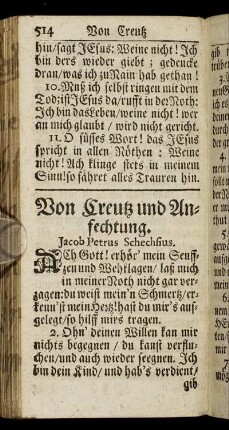 514 Von Creutz
hin/sagt JEsus: Weine nicht! Jch
bin ders wieder giebt; gedencke
dran/was ich zu Nain hab gethan!
10. Muß ich selbst ringen mit dem
Tod: ist JEsus da/rufft in der Noth:
Jch bin das Leben/weine nicht! wer
an mich glaubt / wird nicht gericht.
11. O süsses Wort! das JEsus
spricht in allen Nöthen: Weine
nicht! Ach klinge stets in meinem
Sinn! so fähret alles Trauren hin.
Von Creutz und An-
fechtung.
Jacob Petrus Schechsius.
ACh Gott! erhör' mein Seuff-
zen und Wehklagen/ laß mich
in meiner Noth nicht gar ver-
zagen: du weist mein'n Schmertz/er-
kenn'st mein Hertz! hast du mir's auf-
gelegt/so hilff mirs tragen.
2. Ohn' deinen Willen kan mir
nichts begegnen / du kanst verflu-
chen/und auch wieder seegnen. Jch
bin dein Kind/ und hab's verdient/
gib